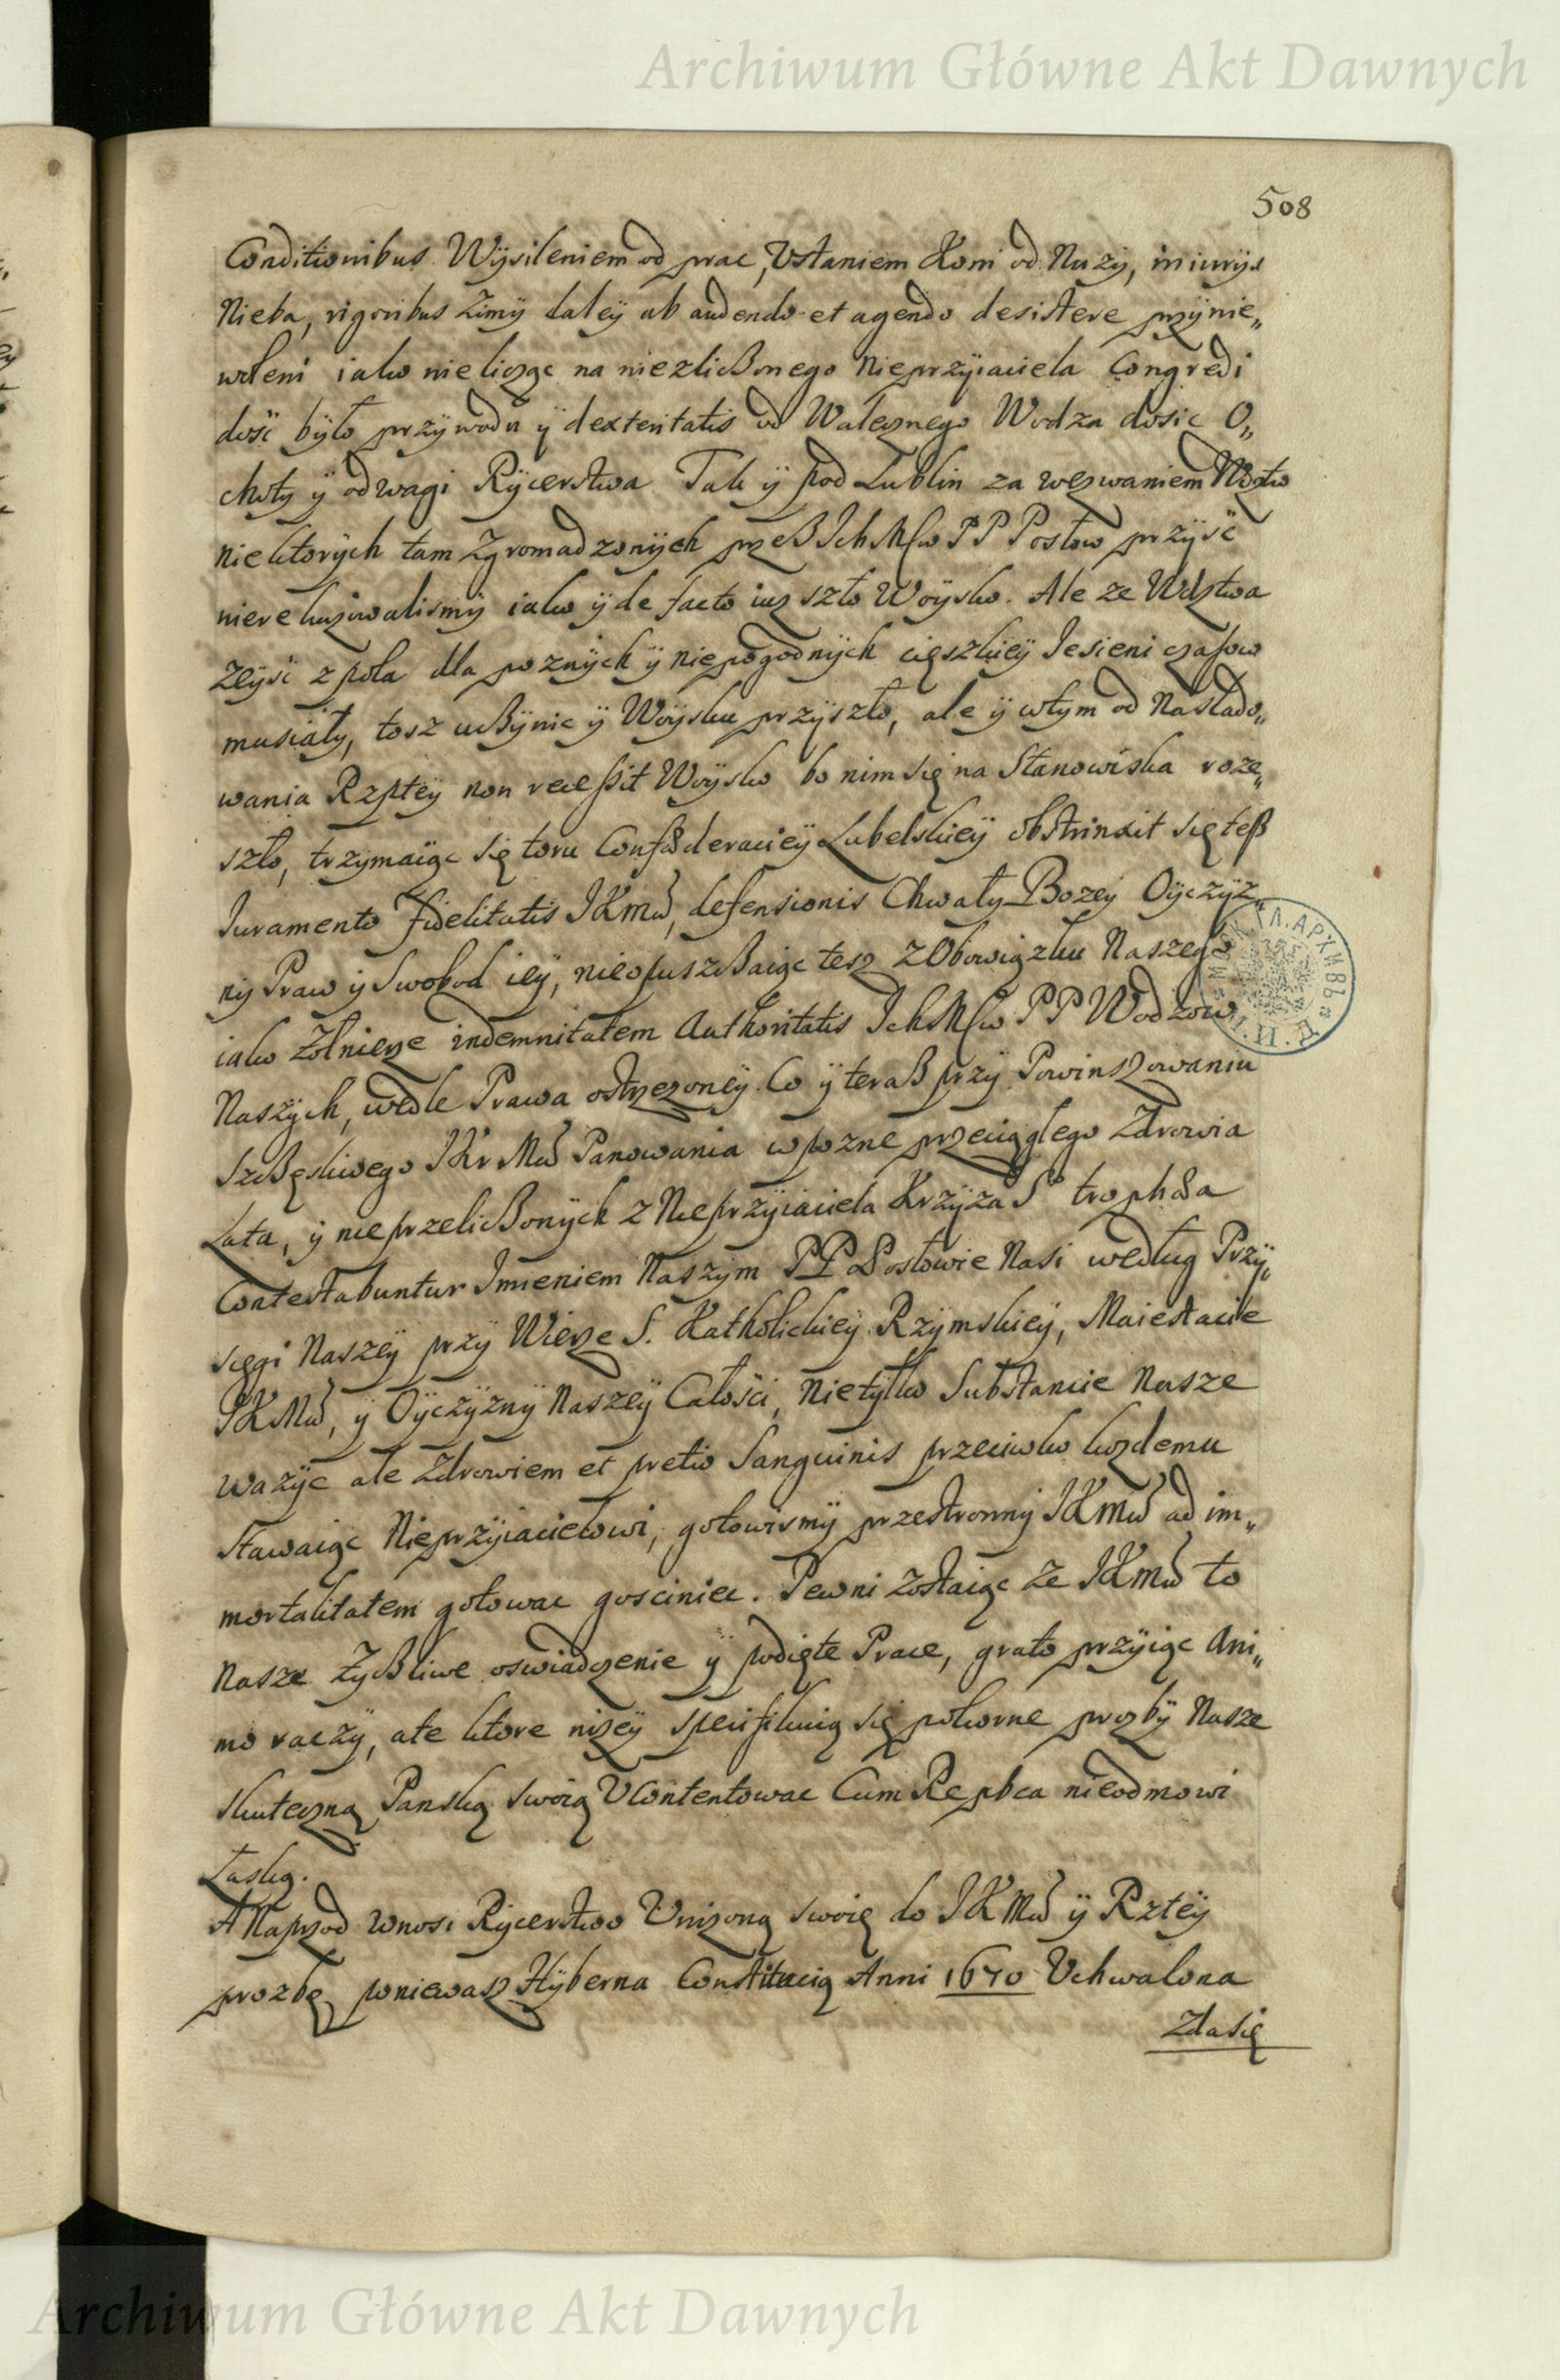 Archiwum Główne Akt Dawnych
508
Conditionibus Wÿsileniem od prac, Vstaniem Koni od Nużÿ, iniurÿs
Nieba, rigoribus Zimÿ daleÿ ab audendo et agendo desistere przÿnie„
woleni iako nie licząc na niezliczonego Nieprzÿiaciela Congredi
dość bÿło przÿwodu ÿ dexteritatis od Walecznego Wodza dosic O„
choty ÿ odwagi Rÿcerstwa. Tak ÿ pod Lublin za wezwaniem Wdztw
niektorÿch tam Zgromadzonÿch przeß IchMsćw PP Posłow przÿść
nierekuzowalismÿ iako ÿ de facto iuz szło Woÿsko. Ale ze Wdztwa
Zeÿsć z pola dla poznÿch ÿ niepogodnÿch cięszkieÿ Iesieni czasow
musiały, tosz uczÿnic ÿ Woÿsku przÿszło, ale ÿ wtym od Naslado„
wania Rzpteÿ non recessit Woÿsko bo nim się na Stanowiska roze„
szło, trzymaiąc się toru Confæderacieÿ Lubelskieÿ obstrinxit się teß
Iuramento fidelitatis IKMći, defensionis Chwały Bozeÿ Oÿczÿz„
nÿ Praw ÿ Swobod ieÿ, nieopuszczaiąc tesz z Obowiązku Naszego
iako Żołnierze indemnitatem Authoritatis IchMsćw PP Wodzow
Naszÿch, wedle Prawa ostrzezoneÿ. Co ÿ teraß przÿ Powinszowaniu
Szczęsliwego IKr Mći Panowania w pozne przeciągłego Zdrowia
Lata, ÿ nieprzeliczonÿch z Nieprzÿiaciela Krzÿża So trophæa
Contestabuntur Imieniem Naszÿm PP Posłowie Nasi według Przÿ„
sięgi Naszeÿ przÿ Wierze S. Katholickieÿ Rzÿmskieÿ, Maiestacie
IKMći, ÿ Oÿczÿznÿ Naszeÿ Całości, Nietÿlko Substancie Nasze
ważÿc ale Zdrowiem et pretio Sanguinis przeciwko kozdemu
Stawaiąc Nieprzÿiacielowi, gotowismÿ przestronnÿ IKMći ad im„
mortalitatem gotowac gosciniec. Pewni Zostaiąc Ze IKMć to
Nasze Zÿczliwe oswiadczenie ÿ podięte Prace, grato przÿiąc Ani„
mo raczÿ, a te ktore nizeÿ specifikuią się pokorne prozbÿ Nasze
skuteczną Panską swoią Vcontentowac Cum Repbca nieodmowi
Łaską.
A Naprzod wnosi Rÿcerstwo Vnizoną swoię do IKMći ÿ Rzteÿ
prozbę poniewasz Hÿberna Constitucią Anni 1670 Vchwalona
Zda się
Archiwum Główne Akt Dawnych